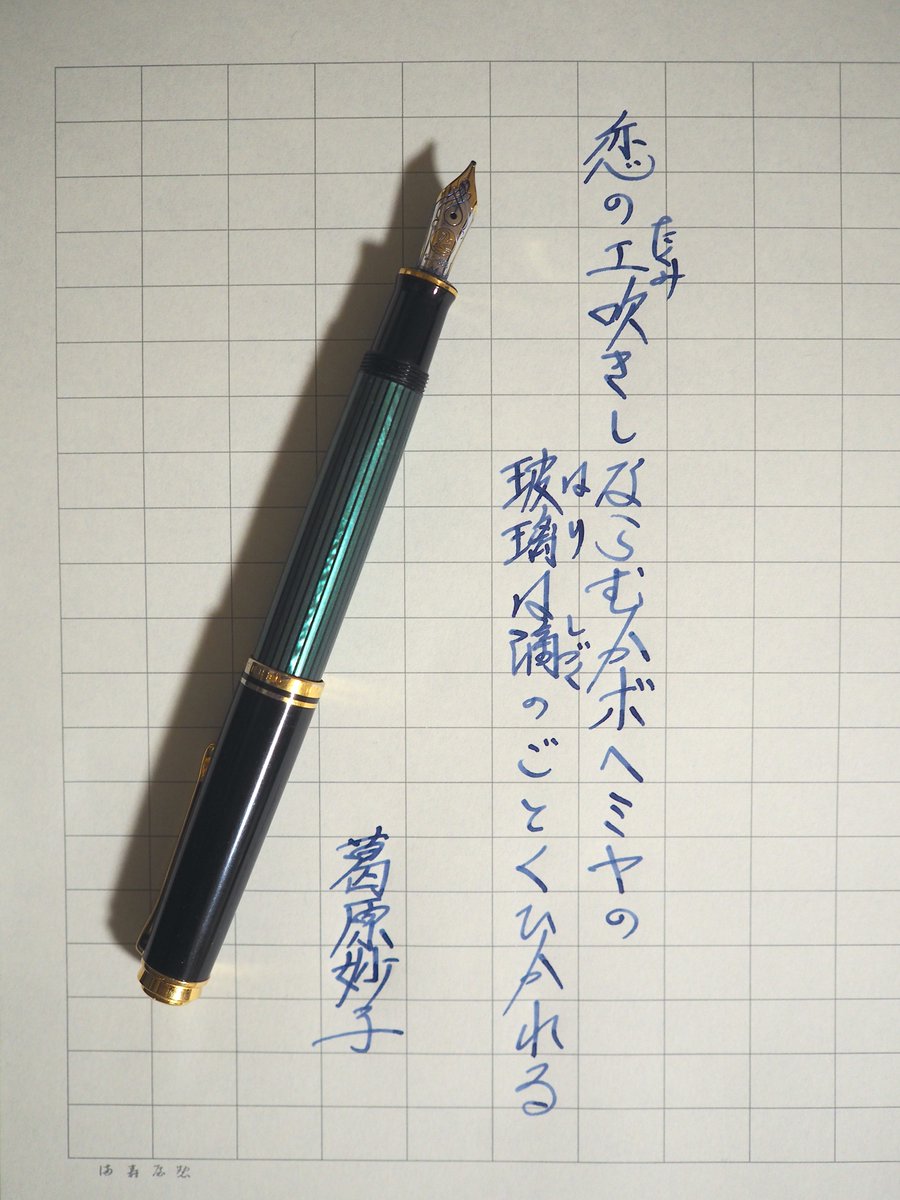 恋の工吹きしならむかボヘミヤの
たくみ
玻璃は滴のごとくひかれる
はり
しづく
葛原妙子